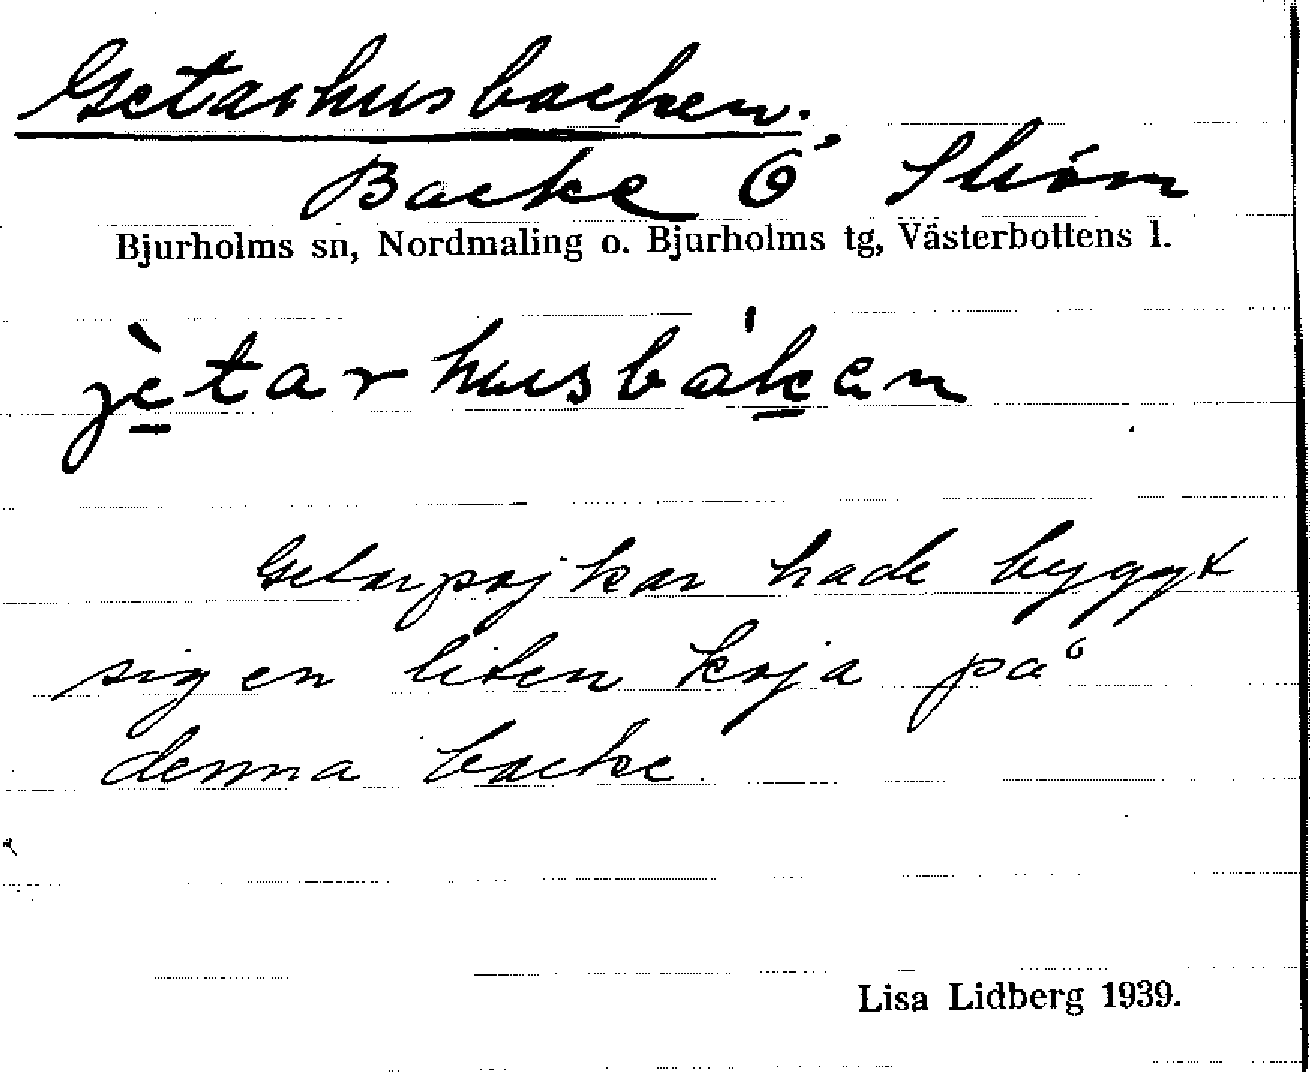 Getarhusbacken.
Backe Ö Ström
Bjurholms sn, Nordmaling o. Bjurholms tg, Västerbottens l.
jètarhusbákan
Getarpojkar hade byggt
sig en liten koja på
denna backe.
Lisa Lidberg 1939.